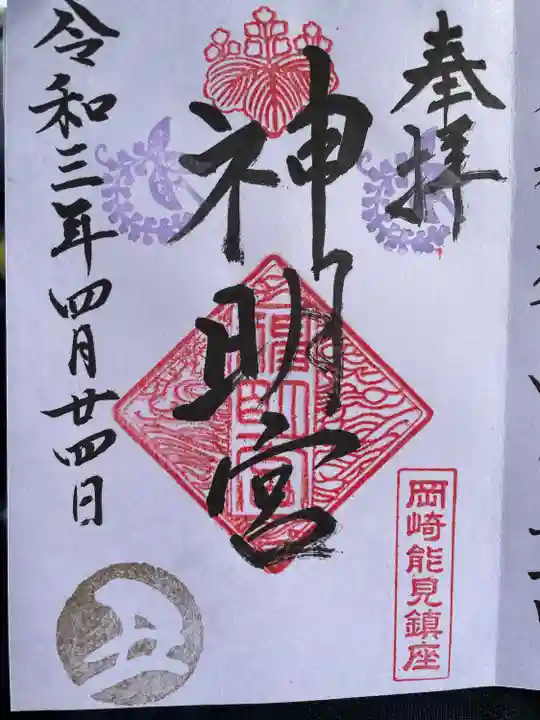 奉拝
岡崎能見鎮座
神明宮
神明宮
令和三年四月廿四日
丑